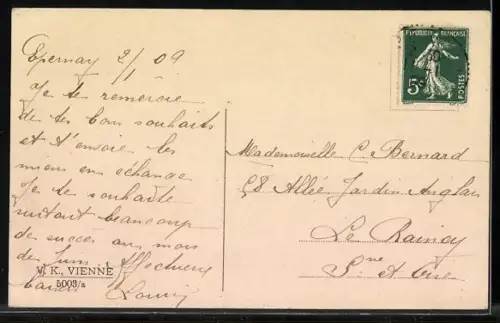 Epernay 2/1 09
Je te remercie
de tes bons souhaits
et t'envoie les
miens en échange
Je te souhaite
surtout beaucoup
de succes au mois
de juin Affectueux
baisers
V. K., VIENNE
5003/a
REPUBLIQUE FRANÇAISE
5c
POSTES
Mademoiselle C. Bernard
58 Allée Jardin Anglais
Le Raincy
Sne et Oise